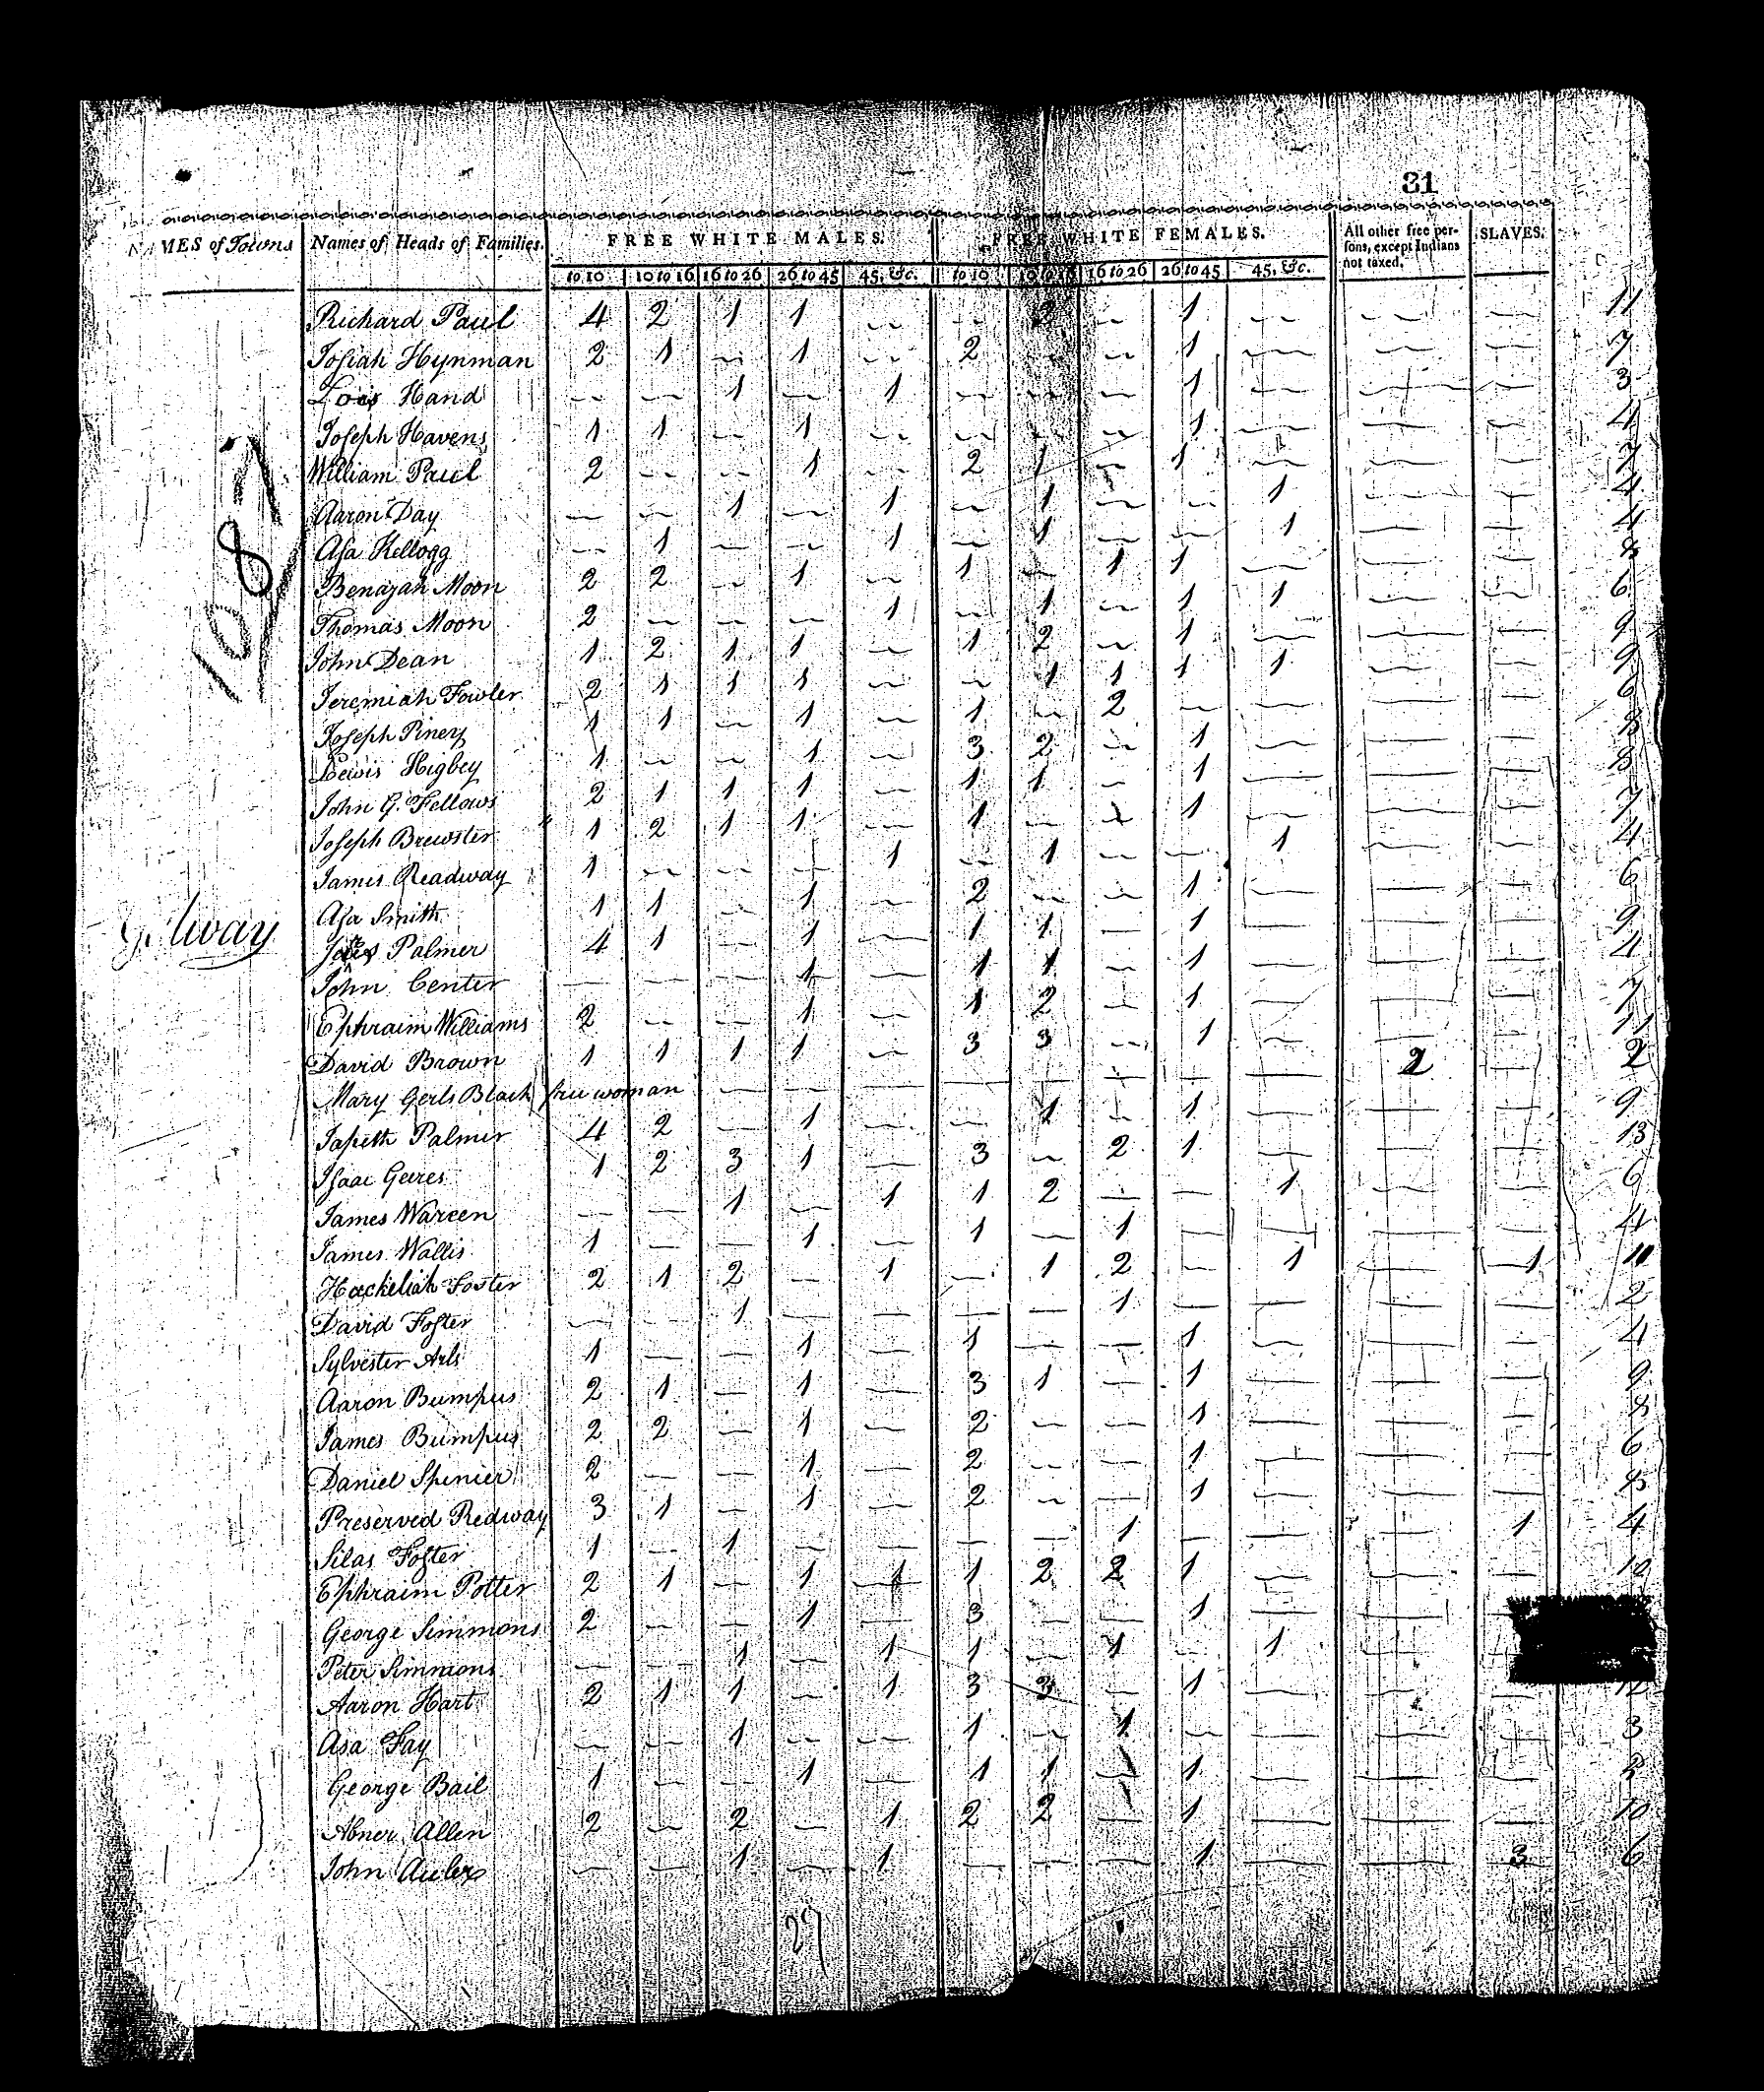 31
NAMES of Towns Names of Heads of Families. FREE WHITE MALES. FREE WHITE FEMALES. All other free persons, except Indians not taxed. SLAVES.
to 10 10 to 16 16 to 26 26 to 45 45, &c. to 10 10 to 16 16 to 26 26 to 45 45, &c.
Richard Paul 4 2 1 1 — — 2 — 1 — — — 11
Josiah Hynman 2 1 — 1 — 2 — — 1 — — — 7
Lois Hand — — 1 — 1 — — — 1 — — — 3
Joseph Havens 1 1 — 1 — — — — 1 — — — 4
William Paul 2 — — 1 — 2 1 — 1 — — — 7
Aaron Day — — 1 — 1 — 1 — — 1 — — 4
Asa Kellogg — 1 — — 1 — 1 — — 1 — — 4
Benajah Moon 2 2 — 1 — 1 — 1 1 — — — 8
Thomas Moon 2 — — — 1 — 1 — 1 1 — — 6
John Dean 1 2 1 1 — 1 2 — 1 — — — 9
Jeremiah Fowler 2 1 1 1 — — 1 1 1 1 — — 9
Joseph Piney 1 1 — 1 — 1 — 2 — — — — 6
Lewis Higbey 1 — — 1 — 3 2 — 1 — — — 8
John G. Fellows 2 1 1 1 — 1 1 — 1 — — — 8
Joseph Brewster 1 2 1 1 — 1 — — 1 — — — 7
James Readway 1 — — — 1 — 1 — — 1 — — 4
Asa Smith 1 1 — 1 — 2 — — 1 — — — 6
Palmer 4 1 — 1 — 1 1 — 1 — — — 9
John Center — — — 1 — 1 1 — 1 — — — 4
Ephraim Williams 2 — — 1 — 1 2 — 1 — — — 7
David Brown 1 1 1 1 — 3 3 — 1 — — — 11
Mary Gerls Black free woman — — — — — — — — 2 — 2
Japeth Palmer 4 2 — 1 — — 1 — 1 — — — 9
Isaac Geeres 1 2 3 1 — 3 — 2 1 — — — 13
James Wareen — — 1 — 1 1 2 — — 1 — — 6
James Wallis 1 — — 1 — 1 — 1 — — — — 4
Hackeliah Foster 2 1 2 — 1 — 1 2 — 1 — 1 11
David Foster — — 1 — — — — 1 — — — — 2
Sylvester Arls 1 — — 1 — 1 — — 1 — — — 4
Aaron Bumpus 2 1 — 1 — 3 1 — 1 — — — 9
James Bumpus 2 2 — 1 — 2 — — 1 — — — 8
Daniel Spinier 2 — — 1 — 2 — — 1 — — — 6
Preserved Redway 3 1 — 1 — 2 — — 1 — — — 8
Silas Foster 1 — 1 — — — — 1 — — — 1 4
Ephraim Potter 2 1 — 1 1 1 2 2 1 — — — 12
George Simmons 2 — — 1 — 3 — — 1 — — —
Peter Simmons — — 1 — 1 1 — 1 — 1 —
Aaron Hart 2 1 1 — 1 3 3 — 1 — — — 12
Asa Fay — — 1 — — 1 — 1 — — — — 3
George Bail 1 — — 1 — 1 1 — 1 — — —
Abner Allen 2 — 2 — 1 2 2 — 1 — — — 10
John — — 1 — 1 — — — 1 — — 3 6
1087
Galway
27